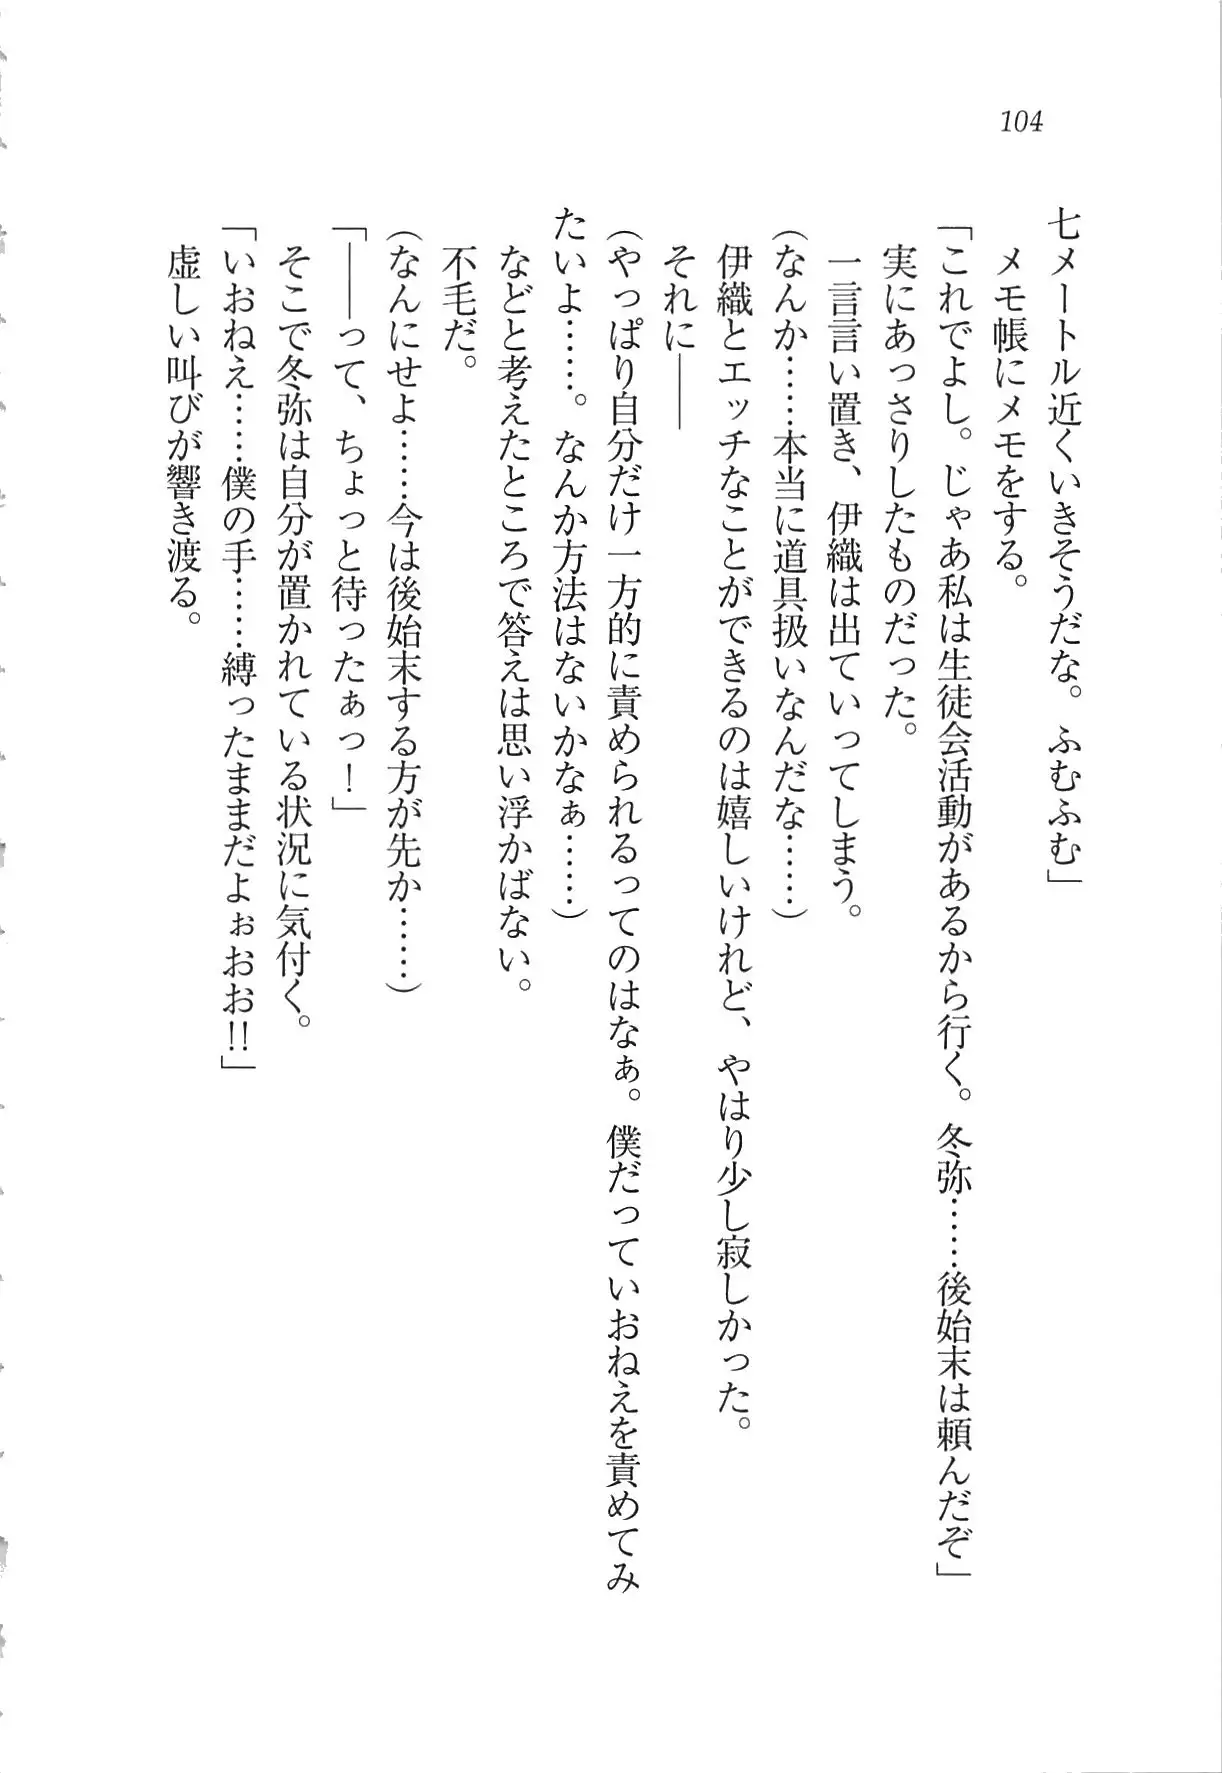 104
七メートル近くいきそうだな。ふむふむ」
メモ帳にメモをする。
「これでよし。じゃあ私は生徒会活動があるから行く。冬弥……後始末は頼んだぞ」
実にあっさりしたものだった。
一言言い置き、伊織は出ていってしまう。
(なんか……本当に道具扱いなんだな……)
伊織とエッチなことができるのは嬉しいけれど、やはり少し寂しかった。
それに――
(やっぱり自分だけ一方的に責められるってのはなぁ。僕だっていおねえを責めてみ
たいよ……。なんか方法はないかなぁ……)
などと考えたところで答えは思い浮かばない。
不毛だ。
(なんにせよ……今は後始末する方が先か……)
「――って、ちょっと待ったぁっ！」
そこで冬弥は自分が置かれている状況に気付く。
「いおねえ……僕の手……縛ったままだよぉおお!!」
虚しい叫びが響き渡る。